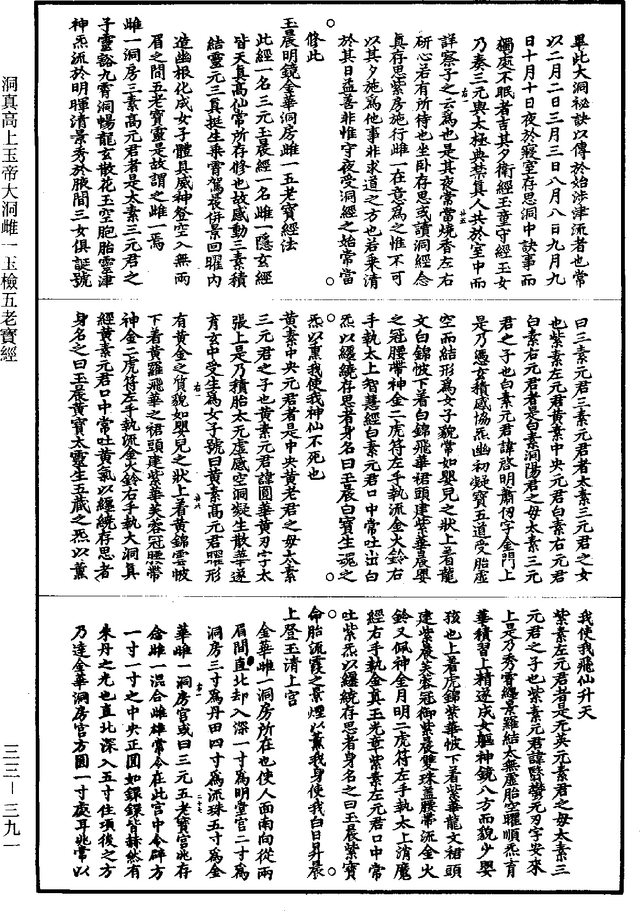 洞真高上玉帝大洞雌一玉檢五老寶經
三三—三九一
畢此大洞祕訣以傳於始涉津流者也常
以二月二日三月三日八月八日九月九
日十月十日夜於寢室存思洞中訣事而
獨處不眠者吉其夕衛經玉童守經玉女
乃奏三元與太極典禁真人共於室中而
詳察子之云為也是其夜常常燒香左右
研心若有所待也坐卧存思或讀洞經念
真存思紫房施行雌一在意為之惟不可
以其夕施為他事非求道之方也若乘清
於其日益善非惟守夜受洞經之始常當
修此
玉晨明鏡金華洞房雌一五老寶經法
此經一名三元玉晨經一名雌一隱玄經
皆天真高仙常所存修也故感動三素積
結靈元三真挺生乘霄駕晨併景回曜內
造幽根化成女子體具威神登空入無兩
眉之間五老寶靈是故謂之雌一焉
雌一洞房三素高元君者是太素三元君之
子靈豁九霄洞暢龍玄散花玉空胞胎靈津
神炁流於明暉清景秀於腋間三女俱誕號
曰三素元君三素元君者太素三元君之女
也紫素左元君黃素中央元君白素右元君
白素右元君者是白素洞陽君之母太素三元
君之子也白素元君諱啓明蕭刃字金門上
是乃憑玄積感協炁幽初凝寶五道受胎虛
空而結形為女子貌常如嬰兒之狀上着龍
文白錦帔下着白錦飛華裙頭建紫華晨嬰
之冠腰帶神金二虎符左手執流金火鈴右
手執太上智慧經白素元君口中常吐出白
炁以纏繞存思者身名曰玉晨白寶生魂之
炁以熏我使我神仙不死也
黃素中央元君者是中央黃老君之母太素
三元君之子也黃素元君諱圓華黃刃字太
張上是乃積胎太元虛感空洞凝生散華遂
育玄中受生為女子號曰黃素高元君曜形
有黃金之質貌如嬰兒之狀上着黃錦雲帔
下着黃羅飛華之裙頭建紫華芙蓉冠腰帶
神金二虎符左手執流金火鈴右手執大洞真
經黃素元君口中常吐黃氣以纏繞存思者
身名之曰玉晨黃寶太靈生五藏之炁以薰
我使我飛仙升天
紫素左元君者是无英元素君之母太素三
元君之子也紫素元君諱翳鬱无刃字安來
上是乃秀霄纏景羅結太無虛胎空曜順炁育
華積習上精遂成女軀神鏡八方而貌少嬰
孩也上着虎錦紫華帔下着紫華龍文裙頭
建紫晨芙蓉冠衘紫晨雙珠蓋腰帶流金火
鈴又佩神金月明二虎符左手執太上消魔
經右手執金真玉光章紫素左元君口中常
吐紫炁以纏繞存思者身名之曰玉晨紫寶
命胎流霞之景煙以薰我身使我白日昇晨
上登玉清上宮
金華雌一洞房所在也使人面南向從兩
眉間直北却入深一寸為明堂宮二寸為
洞房三寸為丹田四寸為流珠五寸為金
華雌一洞房宮或曰三元五老寶宮兆存
念雌一混合雌雄常令在此宮中令辟方
一寸一寸之中央正圓如鏡鏡皆赫然有
朱丹之光也直北深入五寸住項後之方
乃達金華洞房宮方圓一寸處耳兆常以